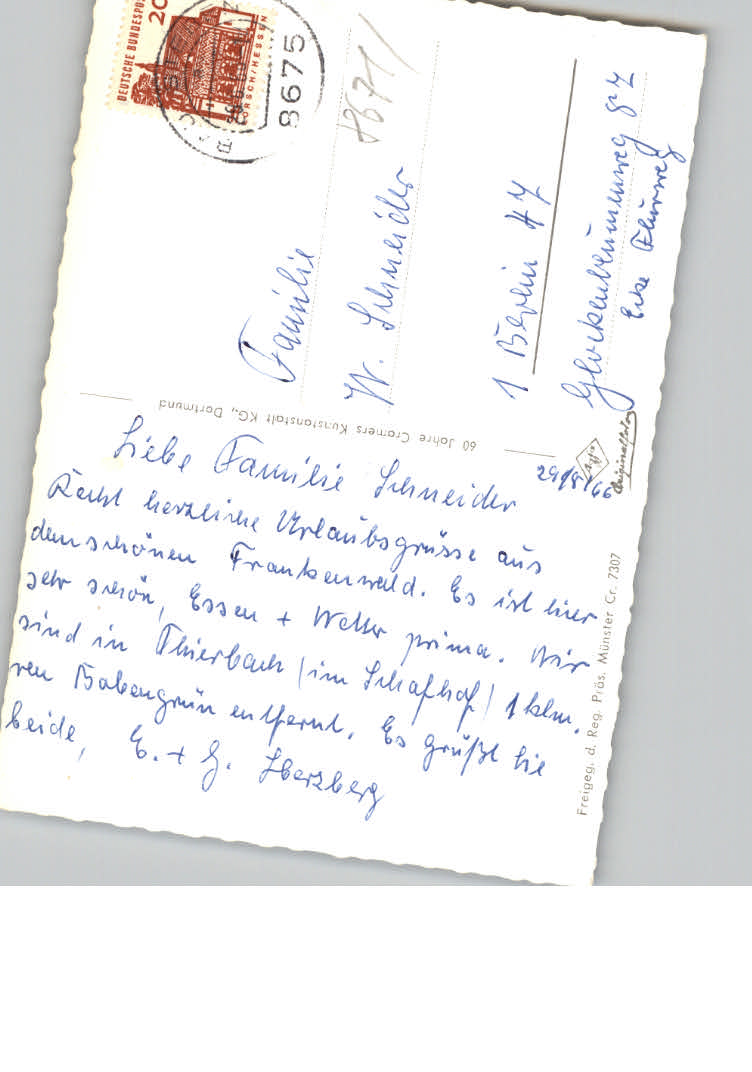 DEUTSCHE BUNDESPOST
20
LORSCH/HESSEN
8675
8671/
Familie
W. Schneider
1 Berlin 47
Glockenblumenweg 82
Ecke Flurweg
60 Jahre Cramers Kunstanstalt KG., Dortmund
Originalfoto
29/8/66
Liebe Familie Schneider
Recht herzliche Urlaubsgrüsse aus
dem schönen Frankenwald. Es ist hier
sehr schön, Essen + Wetter prima. Wir
sind in Thierbach (im Schafhof) 1 klm.
von Bobengrün entfernt. Es grüßt Sie
beide, E. + G. Herzberg
Freigeg. d. Reg. Präs. Münster Cr. 7307